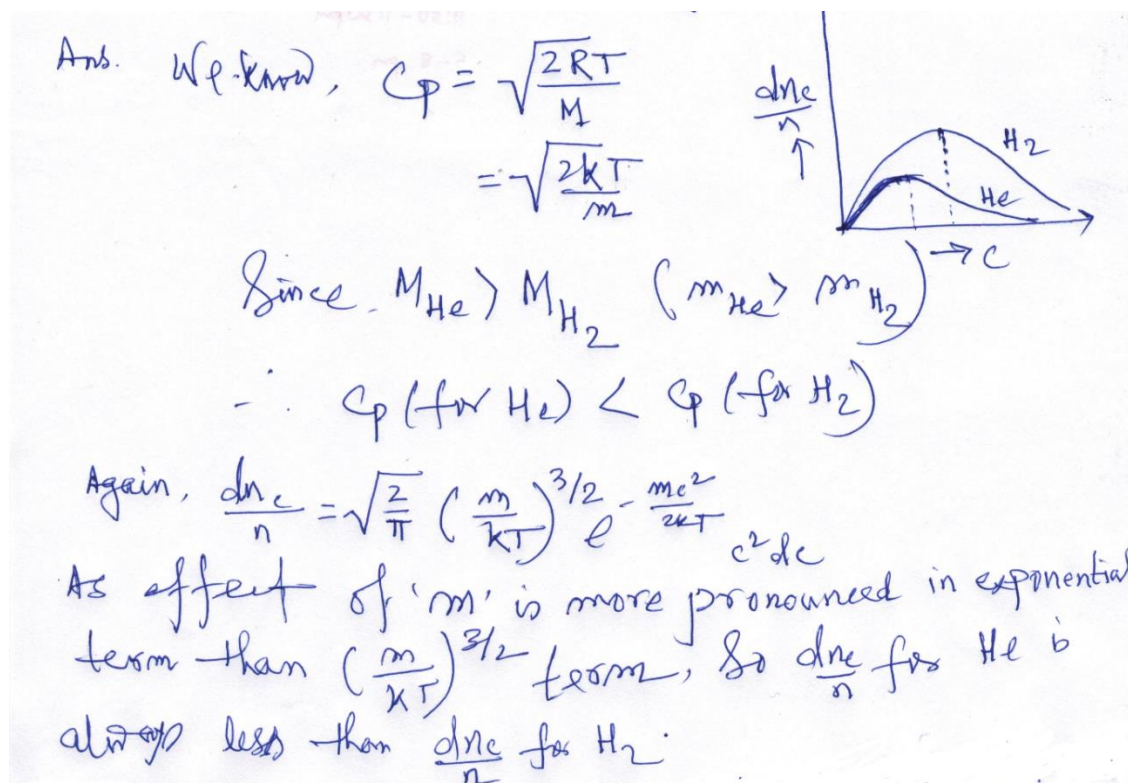 Ans. We know, Cp = √(2RT/M)
= √(2kT/m)
dnc/n ↑
H2
He
→ C
Since M_He > M_H2 (m_He > m_H2)
∴ Cp (for He) < Cp (for H2)
Again, dnc/n = √(2/π) (m/kT)^3/2 e^-mc²/2kT c²dc
As effect of 'm' is more pronounced in exponential
term than (m/kT)^3/2 term, So dnc/n for He is
always less than dnc/n for H2.